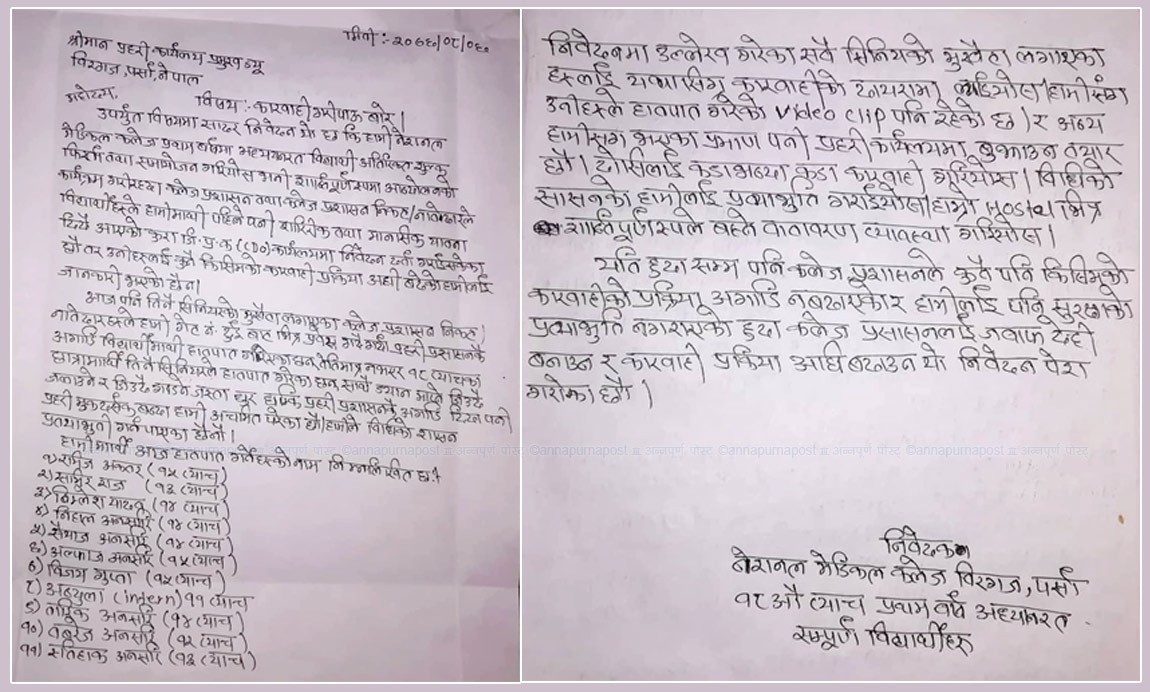 मिती:-२०७६/०८/०६
श्रीमान प्रहरी कार्यलय प्रमुख ज्यू
विरगंज, पर्सा, नेपाल
महोदय,
विषय:- कारवाही गरीपाऊ बारे।
उपर्युत विषयमा सादर निवेदन यो छ कि हामी नेशनल
मेडिकल कलेज प्रथम बर्षमा अध्ययनरत विद्यार्थी अतिरिक्त शुल्क
फिर्ता तथा समायोजन गरियोस भनी शान्तिपूर्ण रुपमा आन्दोलनको
कार्यक्रम गरीरहदा कलेज प्रशासन तथा कलेज प्रशासन निकट/नातेदारले
विद्यार्थीहरुले हामीमाथी पहिले पनी शारिरिक तथा मानसिक यातना
दिदै आएको कुरा जि.प्र.क (CDO) कार्यलयमा निवेदन दर्ता गराईसकेका
छौ तर उनीहरुलाई कुनै किसिमको कारवाही प्रक्रिया अघी बढेको हामीलाई
जानकारी भएको छैन।
आज पनि तिनै सिनियरको मुखैटा लगाएका कलेज प्रशासन निकट/
नातेदारहरुले हामो गेट नं. दुई बाट भित्र प्रवेश गरी प्रहरी प्रसासनकै
अगाडि विद्यार्थीमाथी हातपात गरेका छन्, तेतिमात्र नभएर १८ ब्याचका
छात्रामाथी तिनै सिनियरले हातपात गरेका छन् साथै ज्यान मार्ने जिउदै
जलाउने र जिउदै गाड्ने जस्ता थुर हाम्कि प्रहरी प्रशासनकै अगाडि दिदा पनी
प्रहरी मुकदर्सक बन्दा हामी अचम्मित परेका छौ। हामीले विधिको शासन
प्रत्याभुती गर्न पाएका छैनौ।
हामीमाथी आज हातपात गर्नेहरुको नाम निम्नलिखित छ:-
१) रमिज अकतर (१५ ब्याच)
२) साबुर राज (१३ ब्याच)
३) बिमलेश यादव (१४ ब्याच)
४) निहाल अनसारि (१४ ब्याच)
५) सैयाज अनसारि (१४ ब्याच)
६) अल्फाज अनसारि (१५ ब्याच)
७) विजय गुप्ता (१५ ब्याच)
८) अब्दुला (intern) ११ ब्याच
९) तौफिक अनसारि (१४ ब्याच)
१०) तबरेज अनसारि (१२ ब्याच)
११) सतिहाक अनसारि (१३ ब्याच)
निवेदनमा उल्लेख गरेका सवै सिनियको मुखैटा लगाएका
हरुलाई यथासिघ्र कारवाहीको दायरामा ल्याईयोस। हामीसंग
उनीहरुले हातपात गरेको video clip पनि रहेको छ। र अन्य
हामीसंग भएका प्रमाण पनी प्रहरी कार्यलयमा बुझाउन तयार
छौ। दोसिलाई कडा भन्दा कडा कारवाही गरियोस। विधिको
सासनको हामीलाई प्रत्याभुति गराईयोस। हाम्रो Hostel भित्र
शान्तिपूर्ण रुपले बस्ने वातावरण व्यावस्था गरियोस।
यति हुदा सम्म पनि कलेज प्रशासनले कुनै पनि किसिमको
कारवाहीको प्रक्रिया अगाडि नबढाएको र हामीलाई पनि सुरक्षाको
प्रत्याभुति नगराएको हुदा कलेज प्रसासनलाई जवाफ देही
बनाउन र कारवाही प्रक्रिया अघि बढाउन यो निवेदन पेश
गरेका छौ।
©annapurnapost अन्नपूर्ण पोस्ट ©annapurnapost अन्नपूर्ण पोस्ट ©annapurnapost अन्नपूर्ण पोस्ट
निवेदक
नेशनल मेडिकल कलेज विरगंज, पर्सा
१८ औ ब्याच प्रथम वर्ष अध्यनरत
सम्पूर्ण विद्यार्थीहरु